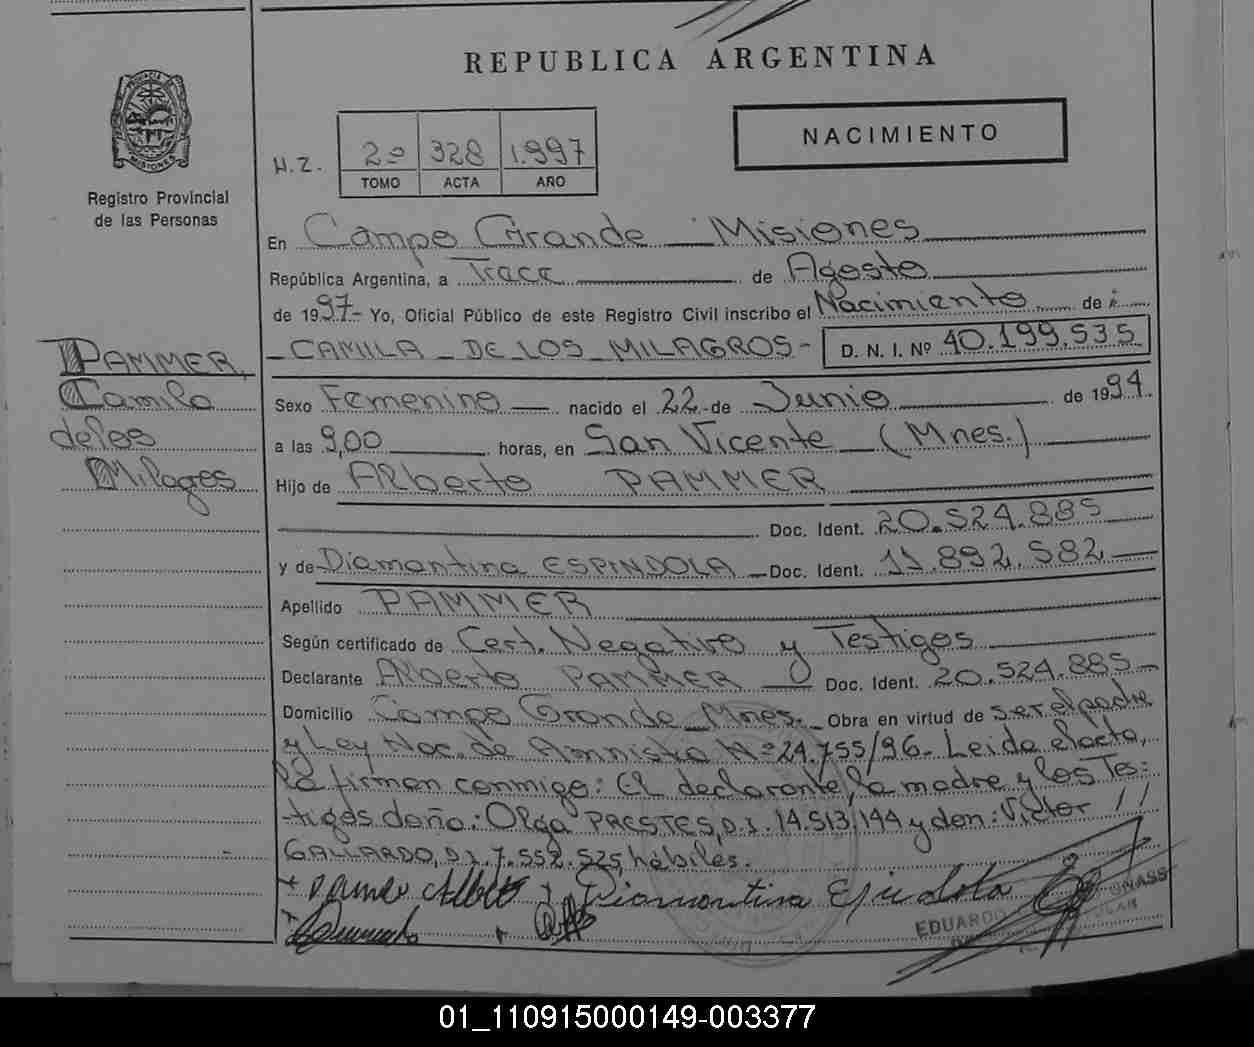 REPUBLICA ARGENTINA
PROVINCIA DE
MISIONES
Registro Provincial
de las Personas
NACIMIENTO
H.Z. 2º 328 1.997
TOMO ACTA AÑO
En Campo Grande Misiones
República Argentina, a Trece de Agosto
de 1997- Yo, Oficial Público de este Registro Civil inscribo el Nacimiento de
- CAMILA - DE LOS MILAGROS - D. N. I. Nº 40.199.535
PAMMER,
Camila
de los
Milagros
Sexo Femenino nacido el 22 de Junio de 1994
a las 9,00 horas, en San Vicente (Mnes.)
Hijo de Alberto PAMMER
Doc. Ident. 20.524.885
y de Diamantina ESPINDOLA Doc. Ident. 11.892.582
Apellido PAMMER
Según certificado de Cert. Negativo y Testigos
Declarante Alberto PAMMER Doc. Ident. 20.524.885
Domicilio Campo Grande Mnes. Obra en virtud de ser el padre
y Ley Nac. de Amnistia Nº 24.755/96- Leida el acta,
la firman conmigo: El declarante, la madre y los Tes-
tigos doña: Olga PRESTES, D.I. 14.513.144 y don: Victor
GALLARDO, D.I. 7.552.525, habiles.
Pamer Alberto Diamantina Espindola
EDUARDO
01_110915000149-003377